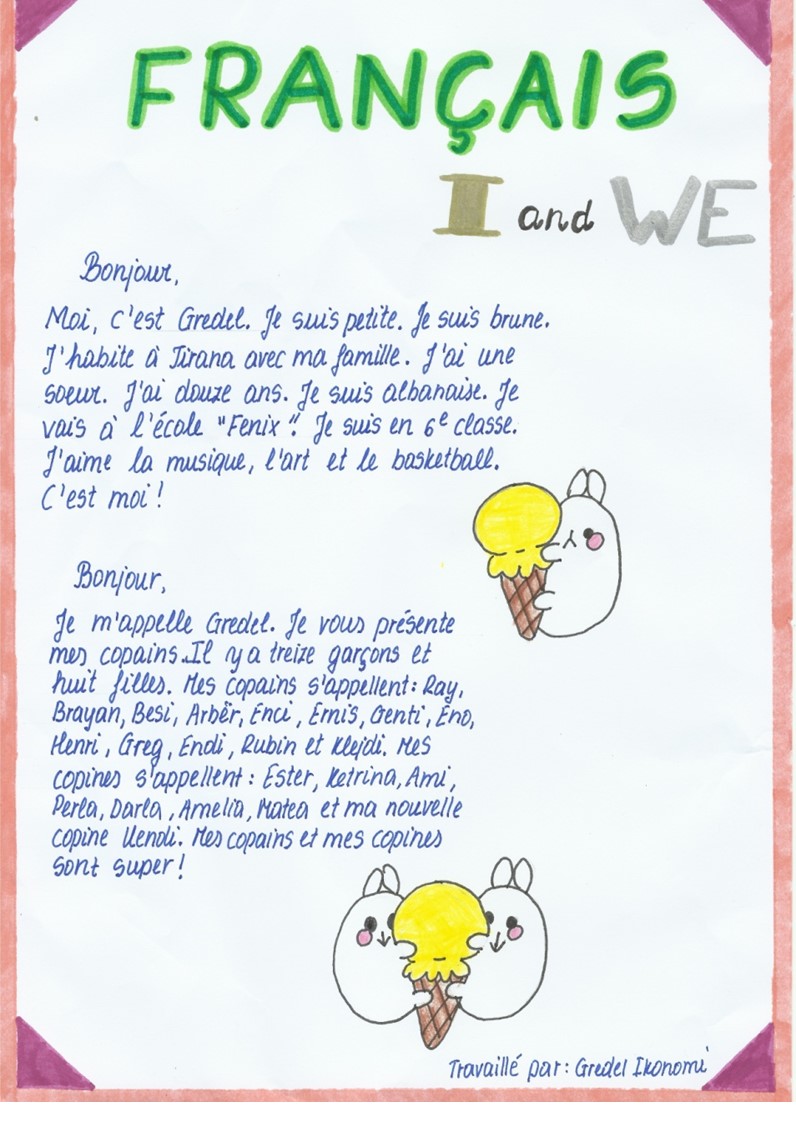 FRANÇAIS
I and WE
Bonjour,
Moi, c'est Gredel. Je suis petite. Je suis brune.
J'habite à Tirana avec ma famille. J'ai une
soeur. J'ai douze ans. Je suis albanaise. Je
vais à l'école "Fenix". Je suis en 6e classe.
J'aime la musique, l'art et le basketball.
C'est moi!
Bonjour,
Je m'appelle Gredel. Je vous présente
mes copains. Il y a treize garçons et
huit filles. Mes copains s'appellent: Ray,
Brayan, Besi, Arbër, Enci, Ernis, Genti, Eno,
Henri, Greg, Endi, Rubin et Klejdi. Mes
copines s'appellent: Ester, Ketrina, Ami,
Perla, Darla, Amelia, Matea et ma nouvelle
copine Uendi. Mes copains et mes copines
sont super!
Travaillé par: Gredel Ikonomi